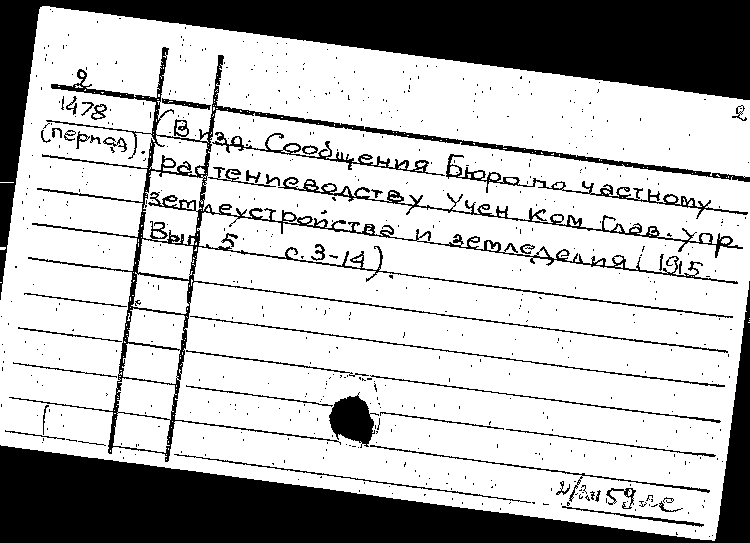 2
2
1478
(период).
(В изд. Сообщения Бюро по частному
растениеводству. Учен ком Глав. упр.
землеустройства и земледелия, 1915
Вып 5. с. 3-14).
59